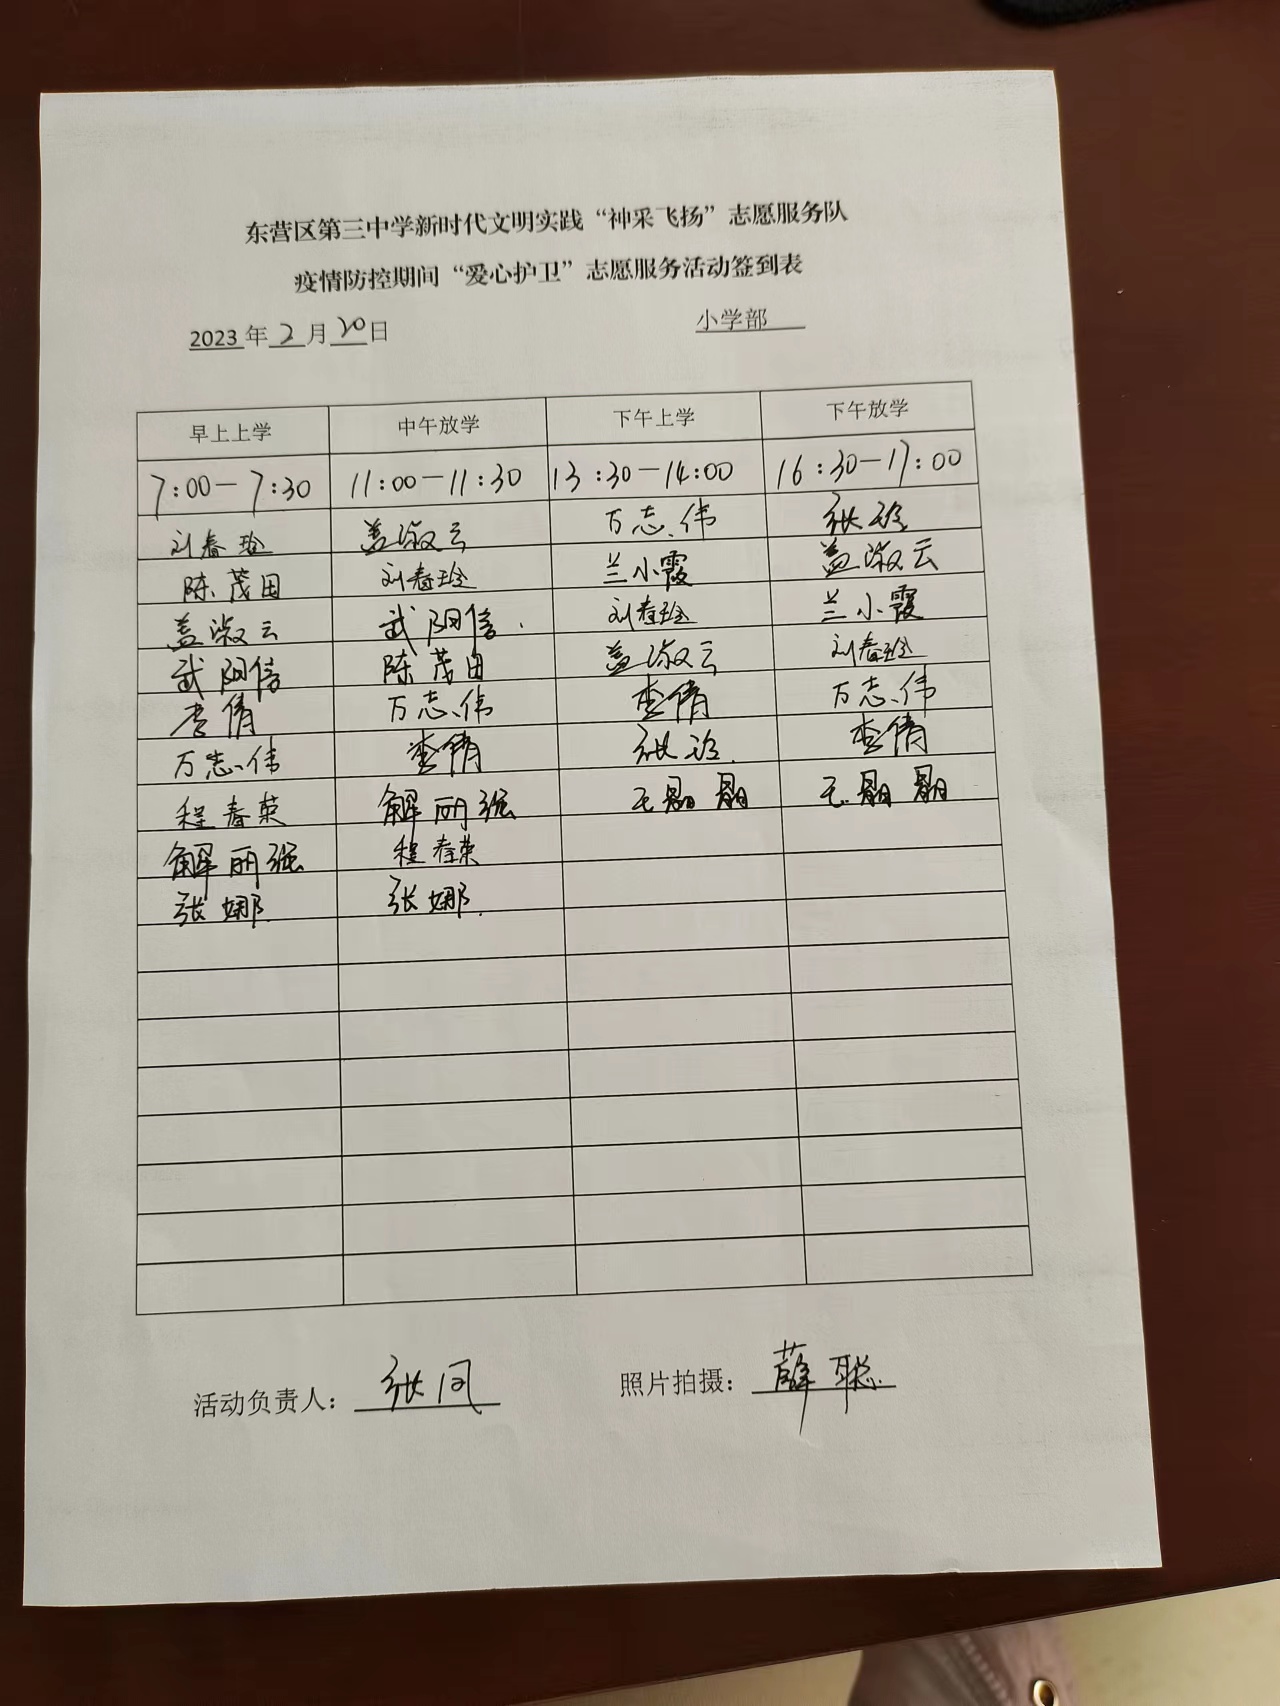 东营区第三中学新时代文明实践“神采飞扬”志愿服务队
疫情防控期间“爱心护卫”志愿服务活动签到表
2023年2月20日 小学部
早上上学 中午放学 下午上学 下午放学
7:00-7:30 11:00-11:30 13:30-14:00 16:30-17:00
刘春玲 盖淑云 万志伟 张玲
陈茂田 刘春玲 兰小霞 盖淑云
盖淑云 武阳信 刘春玲 兰小霞
武阳信 陈茂田 盖淑云 刘春玲
李倩 万志伟 李倩 万志伟
万志伟 李倩 张玲 李倩
程春荣 解丽强
解丽强 程春荣
张娜 张娜
活动负责人：张凤 照片拍摄：薛聪